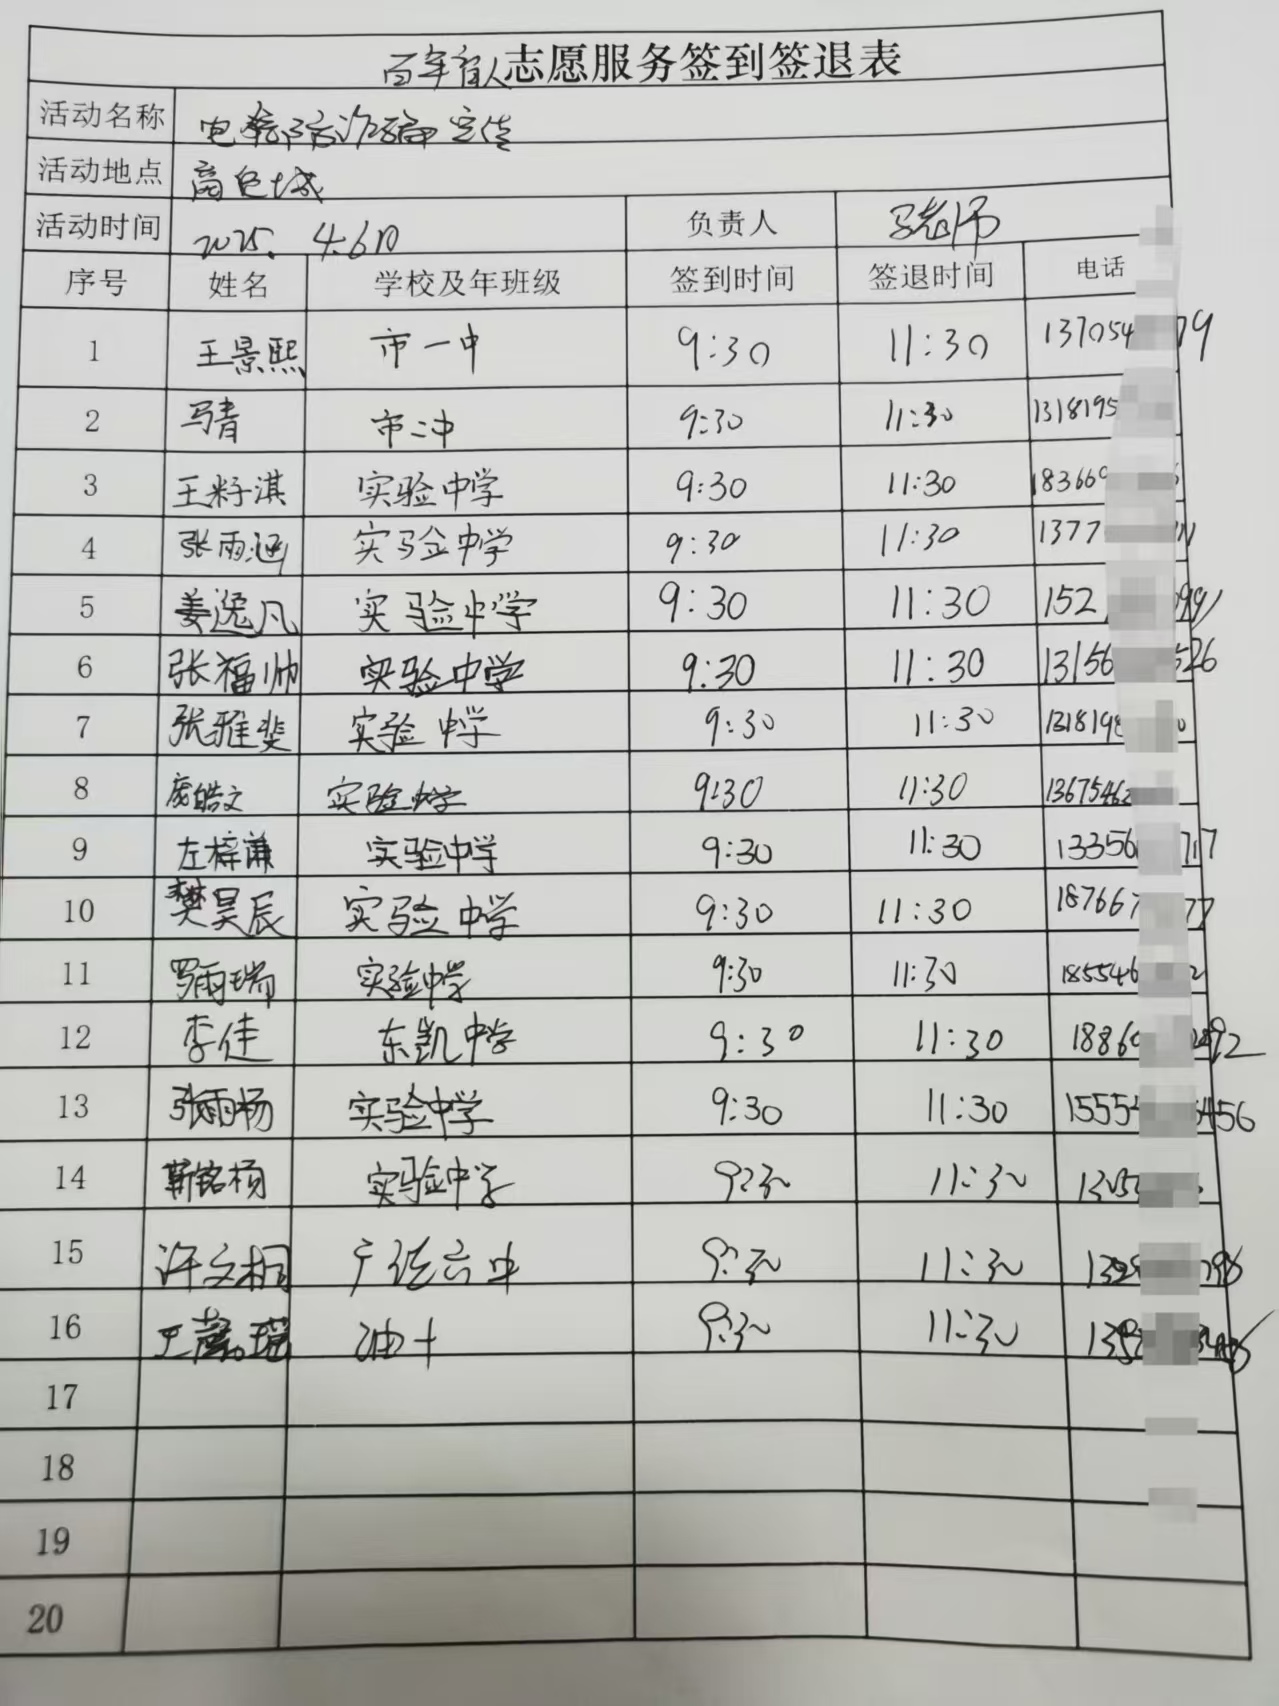 百年育人志愿服务签到签退表
活动名称 电信防诈骗宣传
活动地点
活动时间 2025. 4.6日 负责人 马老师
序号 姓名 学校及年班级 签到时间 签退时间 电话
1 王景熙 市一中 9:30 11:30 137054 79
2 马青 市二中 9:30 11:30 1318195
3 王籽淇 实验中学 9:30 11:30 183669
4 张雨涵 实验中学 9:30 11:30 1377
5 姜逸凡 实验中学 9:30 11:30 152
6 张福帅 实验中学 9:30 11:30 13156 526
7 张雅斐 实验中学 9:30 11:30 1318198
8 庞皓文 实验中学 9:30 11:30 13675462
9 左梓谦 实验中学 9:30 11:30 13356 717
10 樊昊辰 实验中学 9:30 11:30 187667 77
11 罗雨瑞 实验中学 9:30 11:30 185546 2
12 李佳 东凯中学 9:30 11:30 1886 92
13 张雨杨 实验中学 9:30 11:30 1555 456
14 靳铭杨 实验中学 9:30 11:30
15 许文桐 六中 9:30 11:30
16 9:30 11:30
17
18
19
20